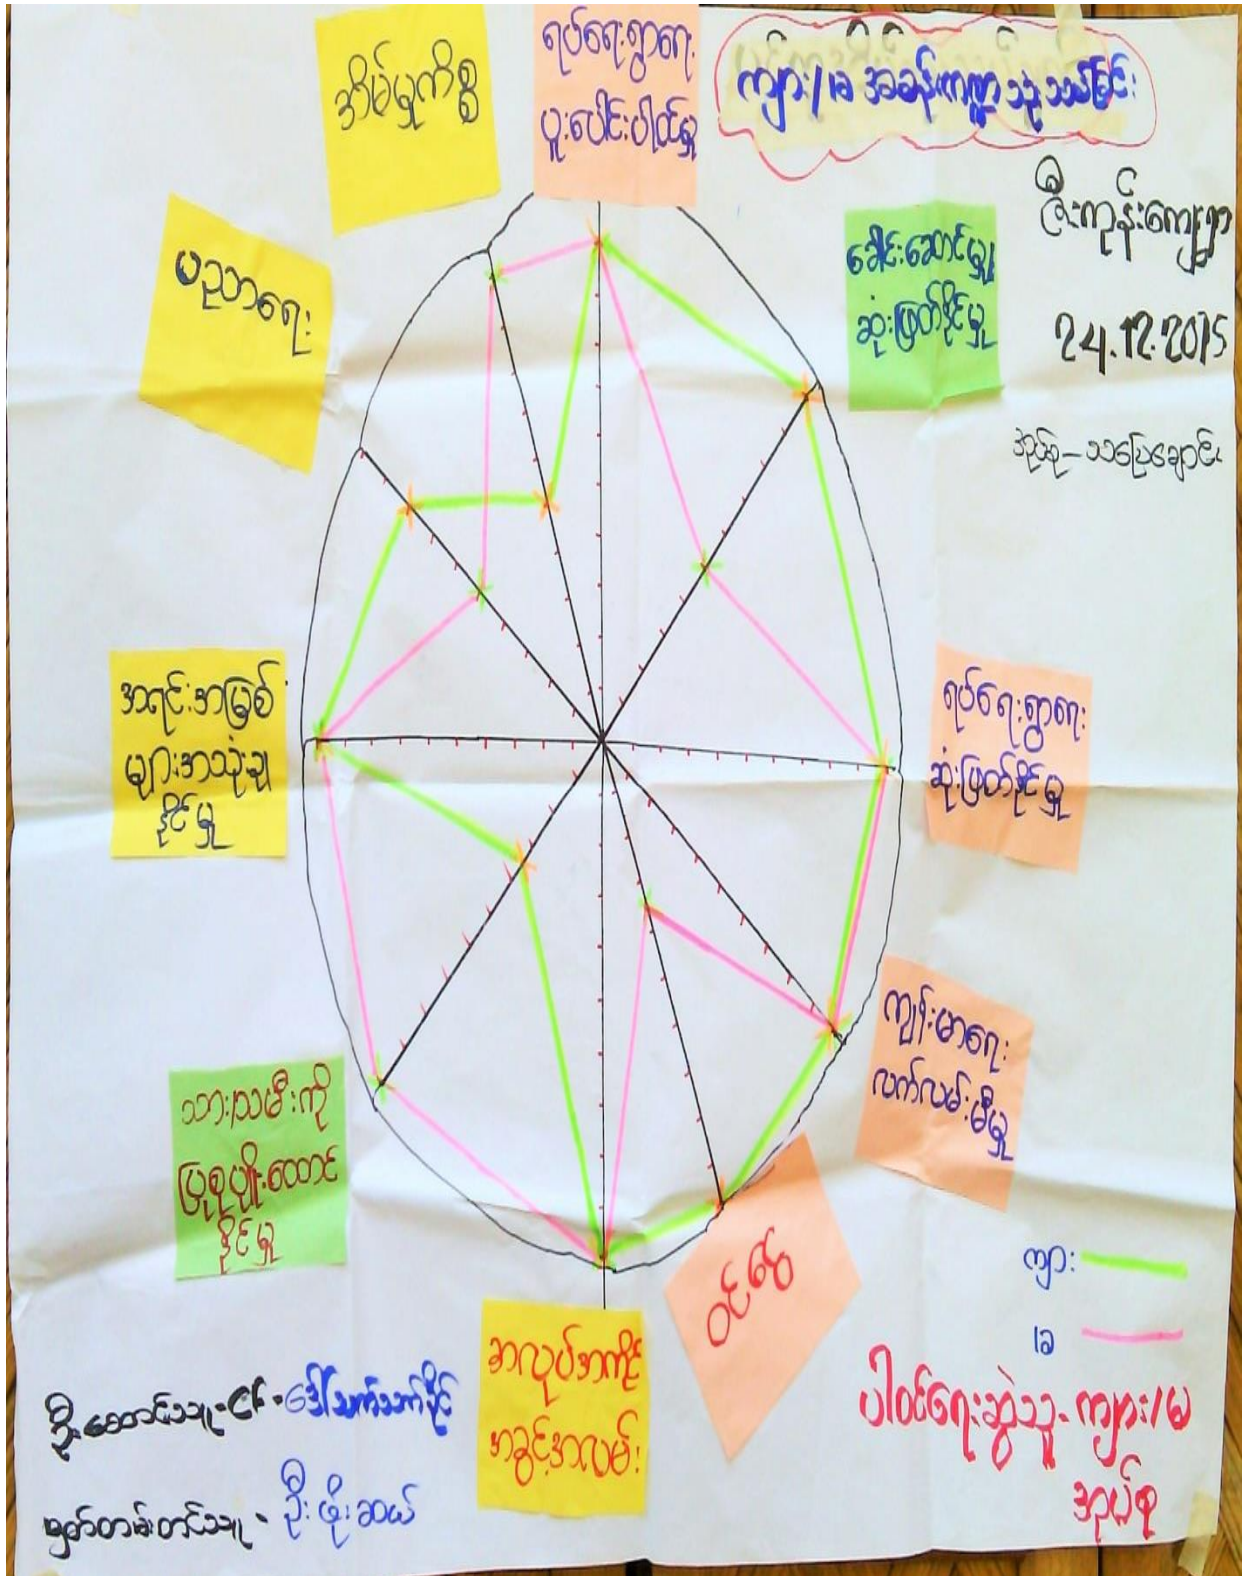 ကျား/မ အခန်းကဏ္ဍ သုံးသပ်ခြင်း
ဇီးကုန်းကျေးရွာ
24.12.2015
အုပ်စု - သပြေချောင်း
ရပ်ရေးရွာရေး
ပူးပေါင်းပါဝင်မှု
အိမ်မှုကိစ္စ
ခေါင်းဆောင်မှု/
ဆုံးဖြတ်နိုင်မှု
ပညာရေး
ရပ်ရေးရွာရေး
ဆုံးဖြတ်နိုင်မှု
အရင်းအမြစ်
များအသုံးချ
နိုင်မှု
ကျန်းမာရေး
လက်လမ်းမီမှု
သား/သမီးကို
ပြုစုပျိုးထောင်
နိုင်မှု
ဝင်ငွေ
အလုပ်အကိုင်
အခွင့်အလမ်း
ကျား
မ
ပါဝင်ရေးဆွဲသူ - ကျား/မ
အုပ်စု
ဦးဆောင်သူ -
ဒေါ်သက်သက်ခိုင်
မှတ်တမ်းတင်သူ - ဦးဖိုးဆယ်